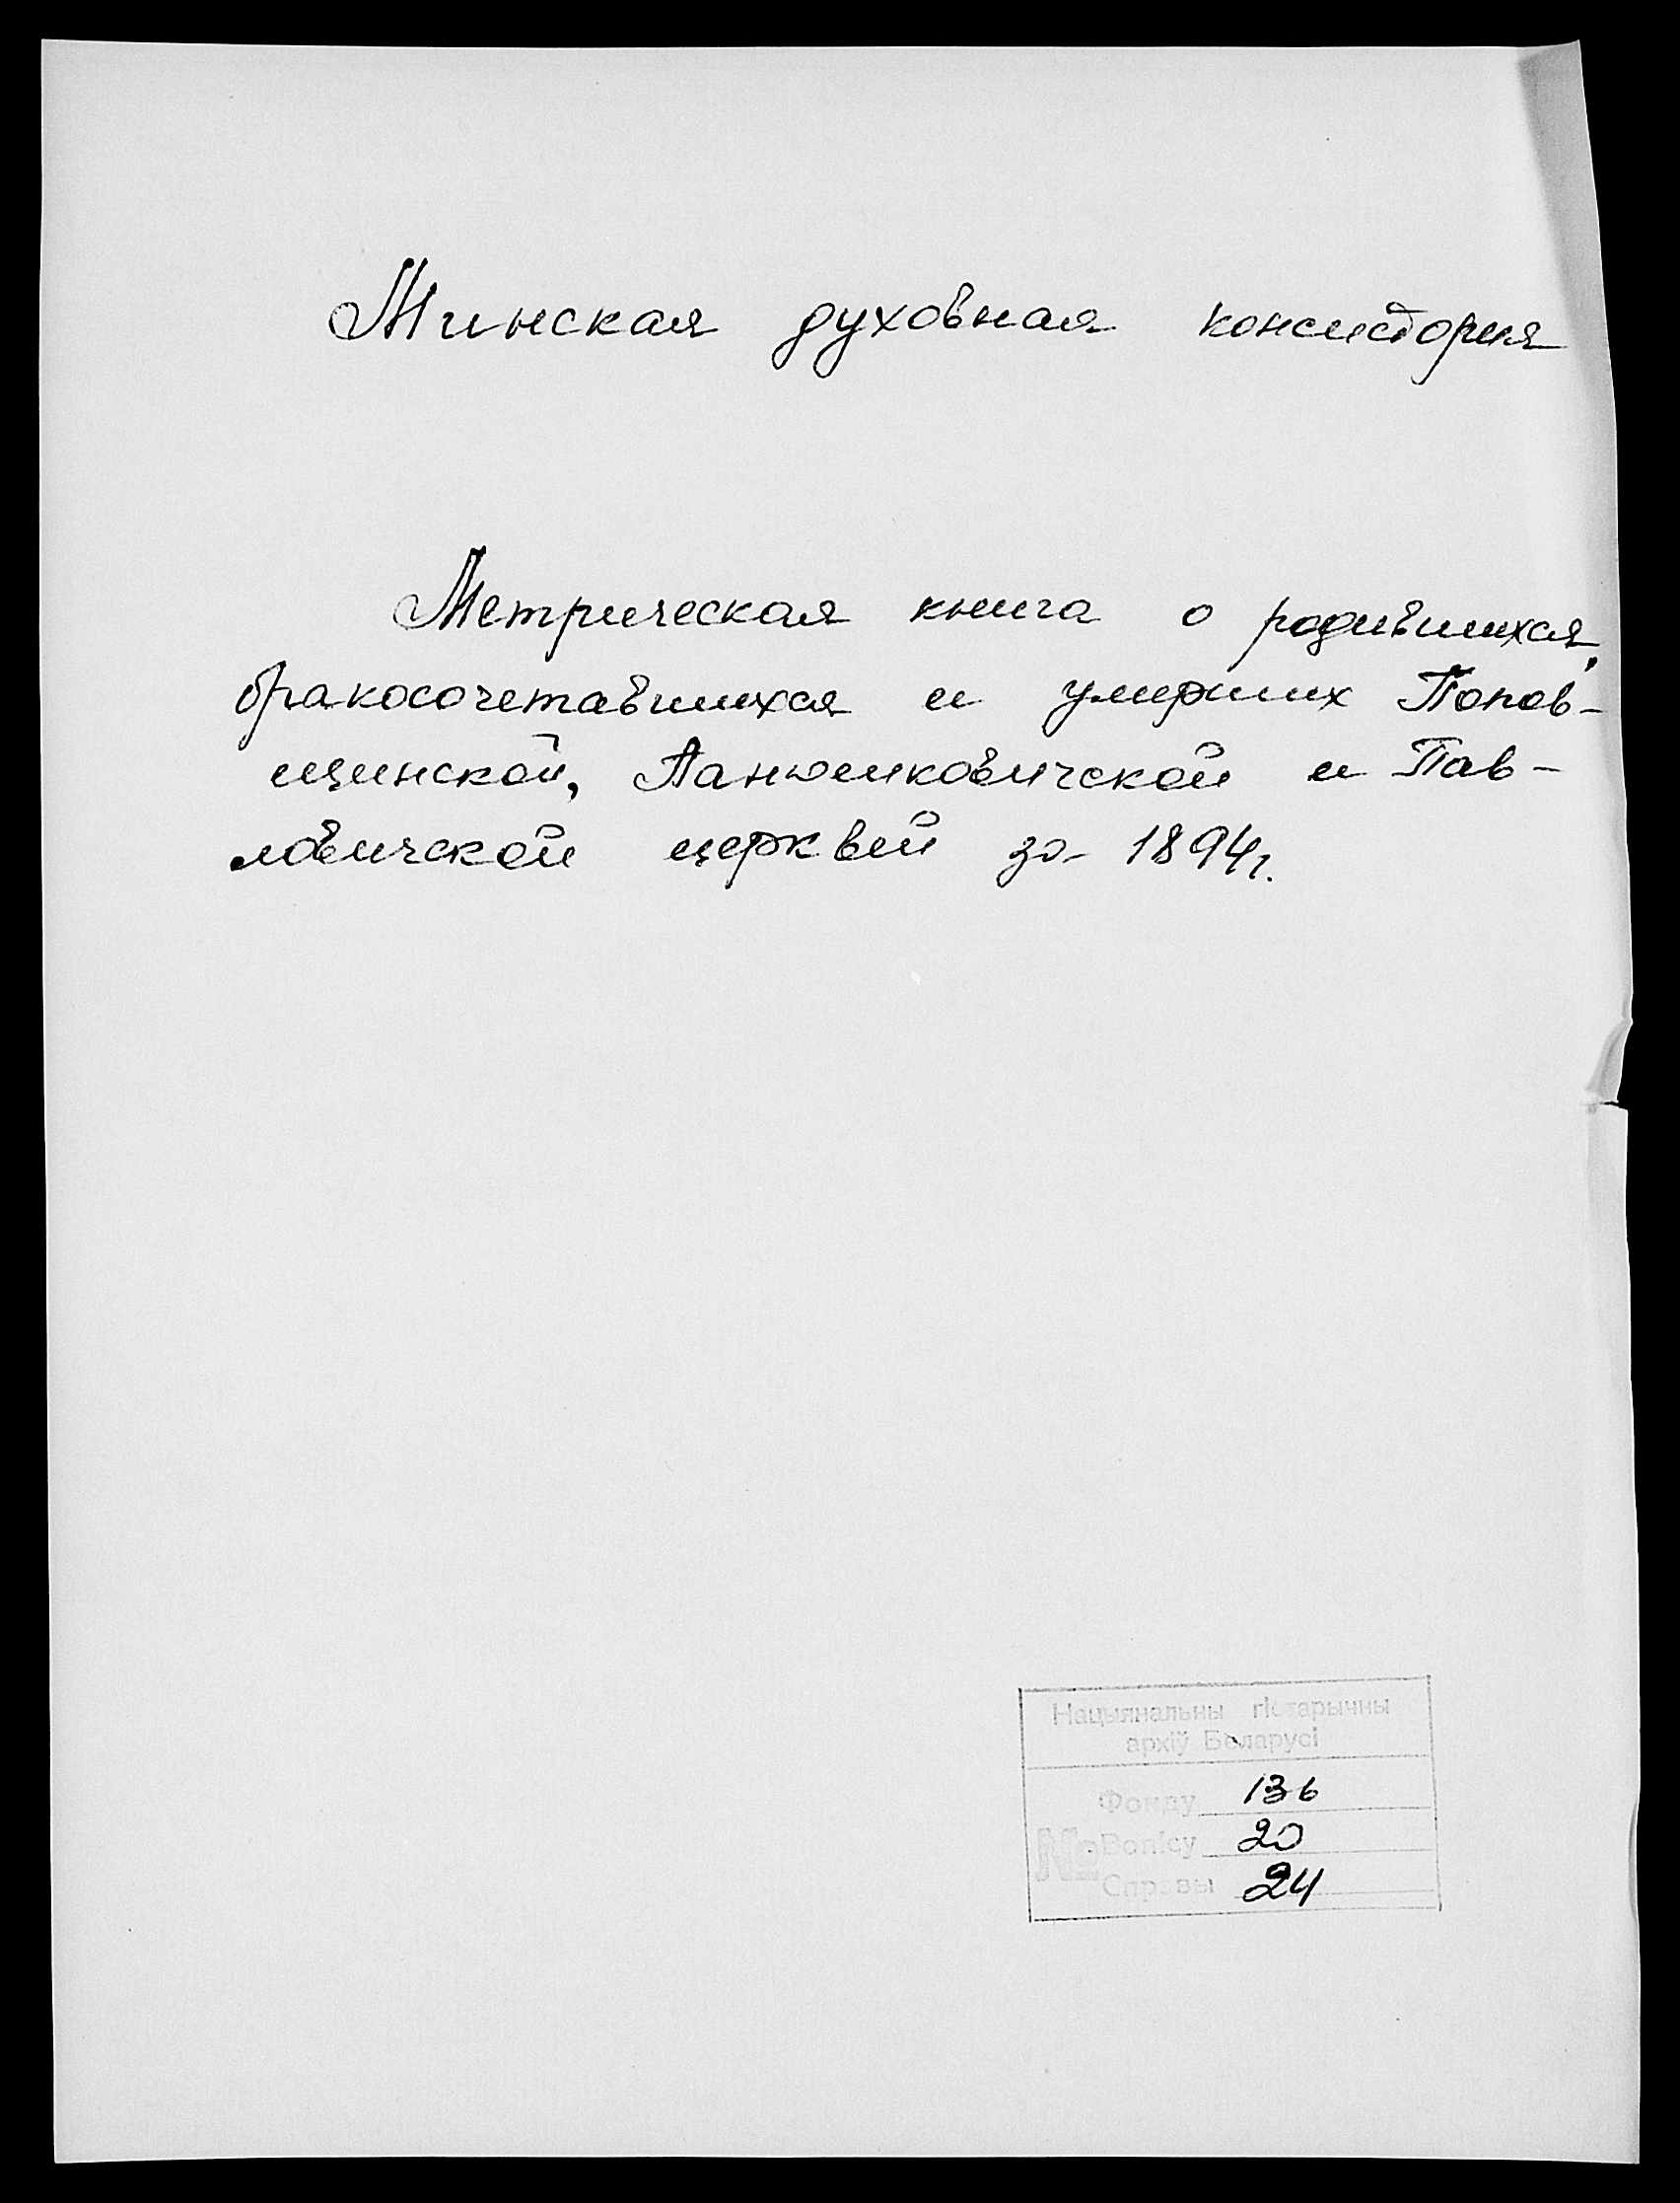 Минская духовная консистория
Метрическая книга о родившихся,
бракосочетавшихся и умерших Попов-
щинской, Панюшковичской и Пав-
ловичской церквей за 1894г.
Нацыянальны гістарычны
архіў Беларусі
Фонду 136
№ Вопісу 20
Справы 24